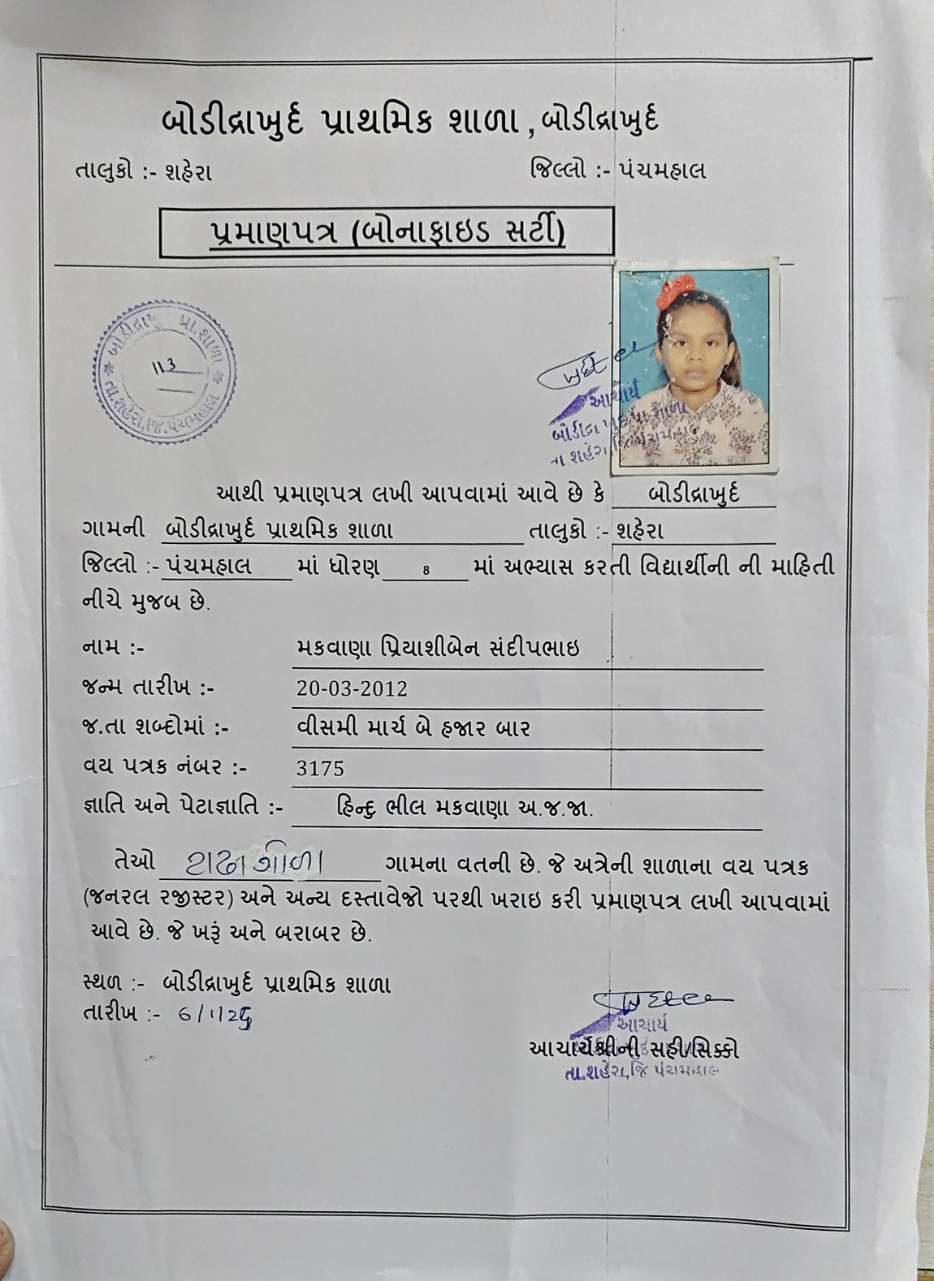 બોડીદ્રાખુર્દ પ્રાથમિક શાળા ,બોડીદ્રાખુર્દ
તાલુકો :- શહેરા જિલ્લો :- પંચમહાલ
પ્રમાણપત્ર (બોનાફાઇડ સર્ટી)
બોડીદ્રા પ્રા.શાળા
113
તા.શહેરા,જિ.પંચમહાલ
આચાર્ય
બોડીદ્રા
તા શહેરા,
આથી પ્રમાણપત્ર લખી આપવામાં આવે છે કે બોડીદ્રાખુર્દ
ગામની બોડીદ્રાખુર્દ પ્રાથમિક શાળા તાલુકો :- શહેરા
જિલ્લો :- પંચમહાલ માં ધોરણ 8 માં અભ્યાસ કરતી વિદ્યાર્થીની ની માહિતી
નીચે મુજબ છે.
નામ :- મકવાણા પ્રિયાશીબેન સંદીપભાઇ
જન્મ તારીખ :- 20-03-2012
જ.તા શબ્દોમાં :- વીસમી માર્ચ બે હજાર બાર
વય પત્રક નંબર :- 3175
જ્ઞાતિ અને પેટાજ્ઞાતિ :- હિન્દુ ભીલ મકવાણા અ.જ.જા.
તેઓ ગામના વતની છે. જે અત્રેની શાળાના વય પત્રક
(જનરલ રજીસ્ટર) અને અન્ય દસ્તાવેજો પરથી ખરાઇ કરી પ્રમાણપત્ર લખી આપવામાં
આવે છે. જે ખરૂં અને બરાબર છે.
સ્થળ :- બોડીદ્રાખુર્દ પ્રાથમિક શાળા
તારીખ :-
આચાર્ય
આચાર્યશ્રીની સહી/સિક્કો
તા.શહેરા,જિ પંચમહાલ